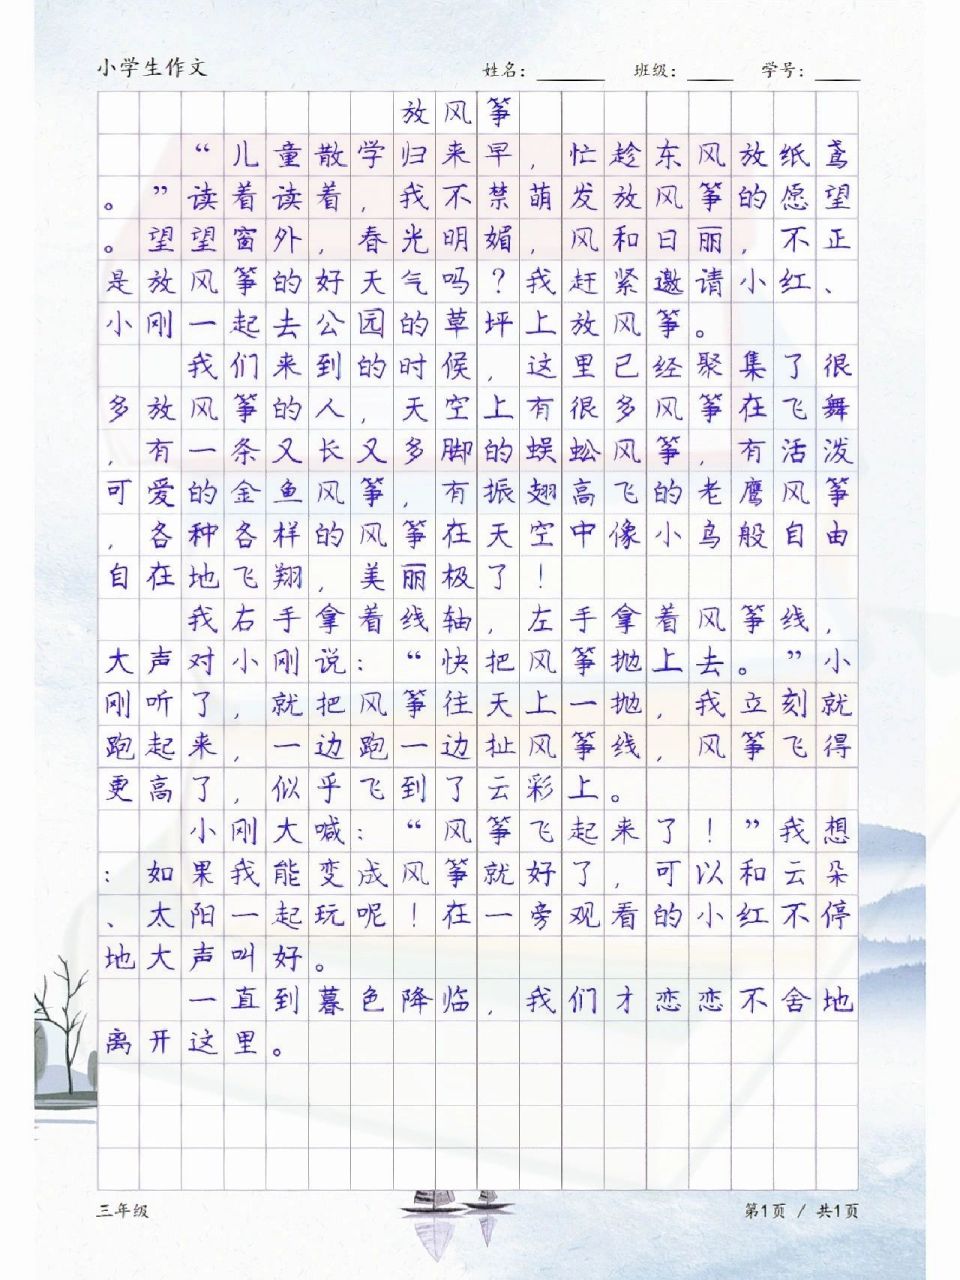 小学生作文 姓名: 班级: 学号:
放风筝
“儿童散学归来早，忙趁东风放纸鸢
。”读着读着，我不禁萌发放风筝的愿望
。望望窗外，春光明媚，风和日丽，不正
是放风筝的好天气吗？我赶紧邀请小红、
小刚一起去公园的草坪上放风筝。
我们来到的时候，这里已经聚集了很
多放风筝的人，天空上有很多风筝在飞舞
，有一条又长又多脚的蜈蚣风筝，有活泼
可爱的金鱼风筝，有振翅高飞的老鹰风筝
，各种各样的风筝在天空中像小鸟般自由
自在地飞翔，美丽极了！
我右手拿着线轴，左手拿着风筝线，
大声对小刚说：“快把风筝抛上去。”小
刚听了，就把风筝往天上一抛，我立刻就
跑起来，一边跑一边扯风筝线，风筝飞得
更高了，似乎飞到了云彩上。
小刚大喊：“风筝飞起来了！”我想
：如果我能变成风筝就好了，可以和云朵
、太阳一起玩呢！在一旁观看的小红不停
地大声叫好。
一直到暮色降临，我们才恋恋不舍地
离开这里。
三年级 第1页 / 共1页